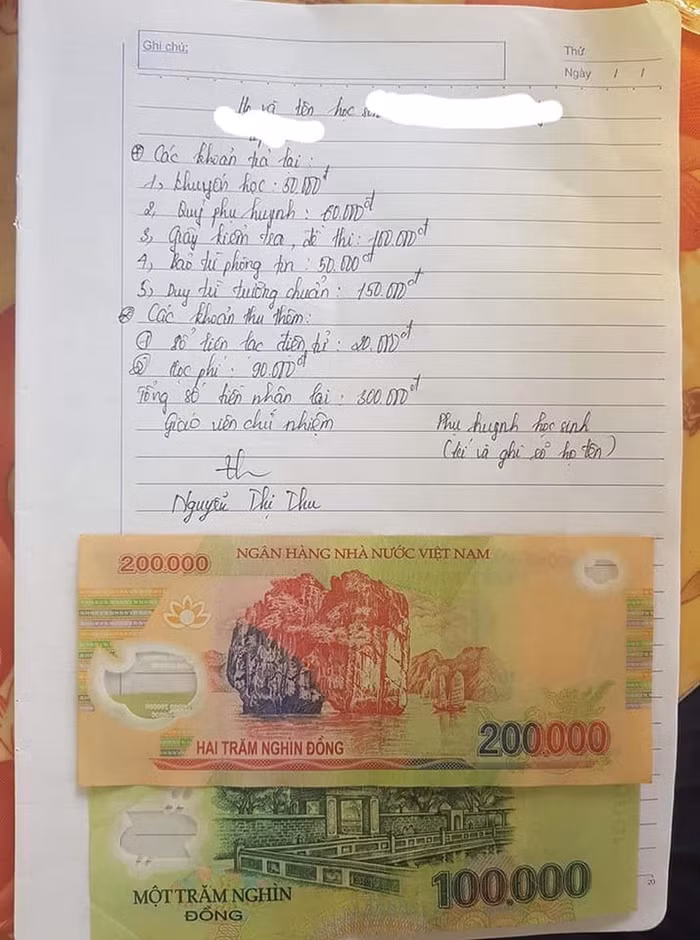 Ghi chú:
Thứ
Ngày / /
Họ và tên học
⊕ Các khoản trả lại :
1, Khuyến học : 50.000đ
2, Quỹ phụ huynh : 60.000đ
3, Giấy kiểm tra, đề thi : 100.000đ
4, Bảo trì phòng tin : 50.000đ
5, Duy trì trường chuẩn : 150.000đ
⊕ Các khoản thu thêm :
① Sổ liên lạc điện tử : 20.000đ
② Học phí : 90.000đ
Tổng số tiền nhận lại : 300.000đ
Giáo viên chủ nhiệm
Phụ huynh học sinh
(kí và ghi rõ họ tên)
Th
Nguyễn Thị Thu
200.000
NGÂN HÀNG NHÀ NƯỚC VIỆT NAM
HAI TRĂM NGHÌN ĐỒNG
200.000
MỘT TRĂM NGHÌN
ĐỒNG
100.000